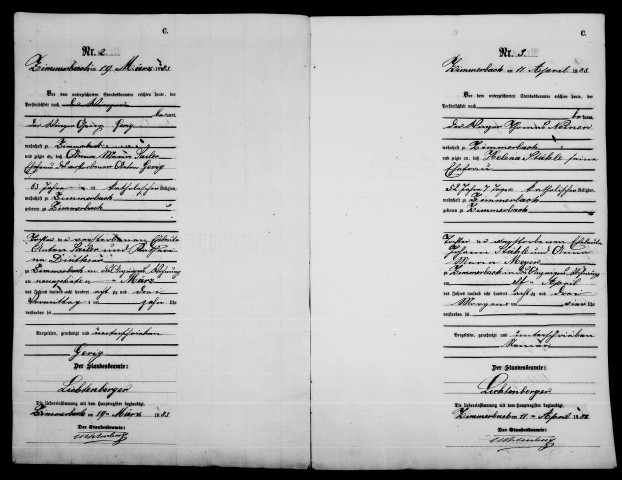 C.
Nr. 2
Zimmerbach am 19. März 1883
Vor dem unterzeichneten Standesbeamten erschien heute, der
Persönlichkeit nach
kannt,
der Winzer Georg Gerig
wohnhaft zu Zimmerbach
und zeigte an, daß Anna Maria Sailer
Ehefrau des verstorbenen Anton Gerig
63 Jahre alt katholischer Religion,
wohnhaft zu Zimmerbach
geboren zu Zimmerbach
Tochter der verstorbenen Eheleute
Anton Sailer und
zu Zimmerbach in des Anzeigers Wohnung
am neunzehnten März
des Jahres tausend acht hundert acht zig und drei
Vormittags um zehn Uhr
verstorben sei
Vorgelesen, genehmigt und unterschrieben
Gerig
Der Standesbeamte:
Lichtenberger
Die Uebereinstimmung mit dem Hauptregister beglaubigt,
Zimmerbach am 19. März 1883
Der Standesbeamte:
C.
Nr. 3.
Zimmerbach am 11. April 1883.
Vor dem unterzeichneten Standesbeamten erschien heute, der
Persönlichkeit nach
kannt,
der Thomas
wohnhaft zu Zimmerbach
und zeigte an, daß Helena Stähle seine
Ehefrau
52 Jahre 7 Tage alt katholischer Religion,
wohnhaft zu Zimmerbach
geboren zu Zimmerbach
Tochter der verstorbenen Eheleute
Johann Stähle und Anna
Maria Meyer
zu Zimmerbach in des Anzeigers Wohnung
am elften April
des Jahres tausend acht hundert acht zig und drei
Morgens um vier Uhr
verstorben sei
Vorgelesen, genehmigt und unterschrieben
Der Standesbeamte:
Lichtenberger
Die Uebereinstimmung mit dem Hauptregister beglaubigt,
Zimmerbach am 11. April 1883
Der Standesbeamte: